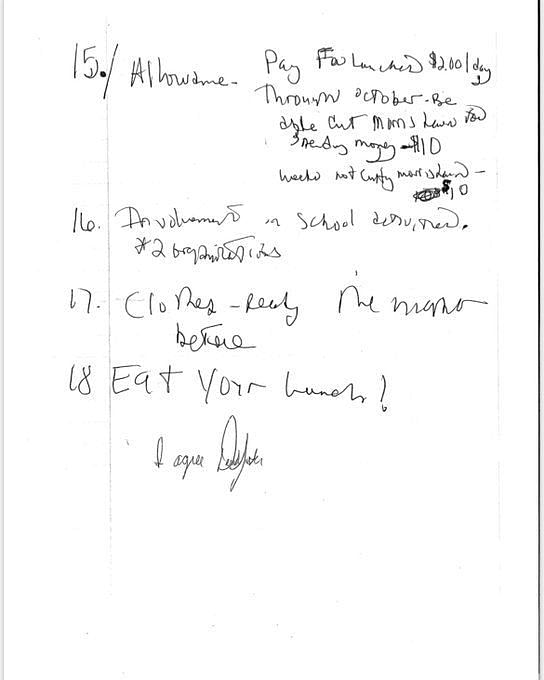 15./ Allowance - Pay For Lunches $2.00/day
Through October - Be
able cut Moms Lawn for
Spending money - $10
weeks not cutting moms lawn -
$10
16. Involvement in school activities.
*2 organizations
17. Clothes - ready the night
before
18 Eat your lunch!
I agree